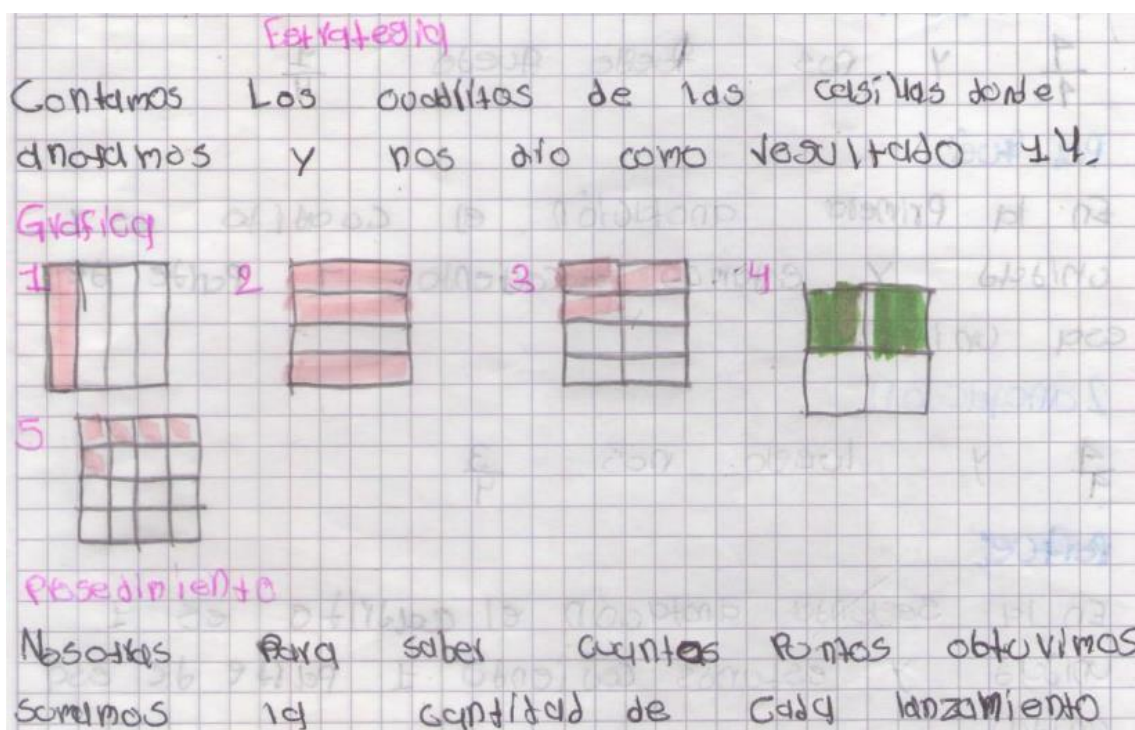 Estrategia
Contamos Los cuadritos de las casillas donde
anotamos y nos dio como resultado 14.
Gráfica
1 2 3 4
5
Prosedimiento
Nosotras Para saber cuantos Puntos obtuvimos
sumamos la cantidad de cada lanzamiento